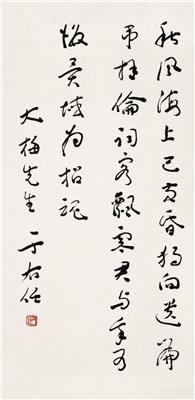 秋風海上已黃昏獨向遺篇
弔拜倫詞客飄零君與我可
能異域為招魂
大梅先生 于右任